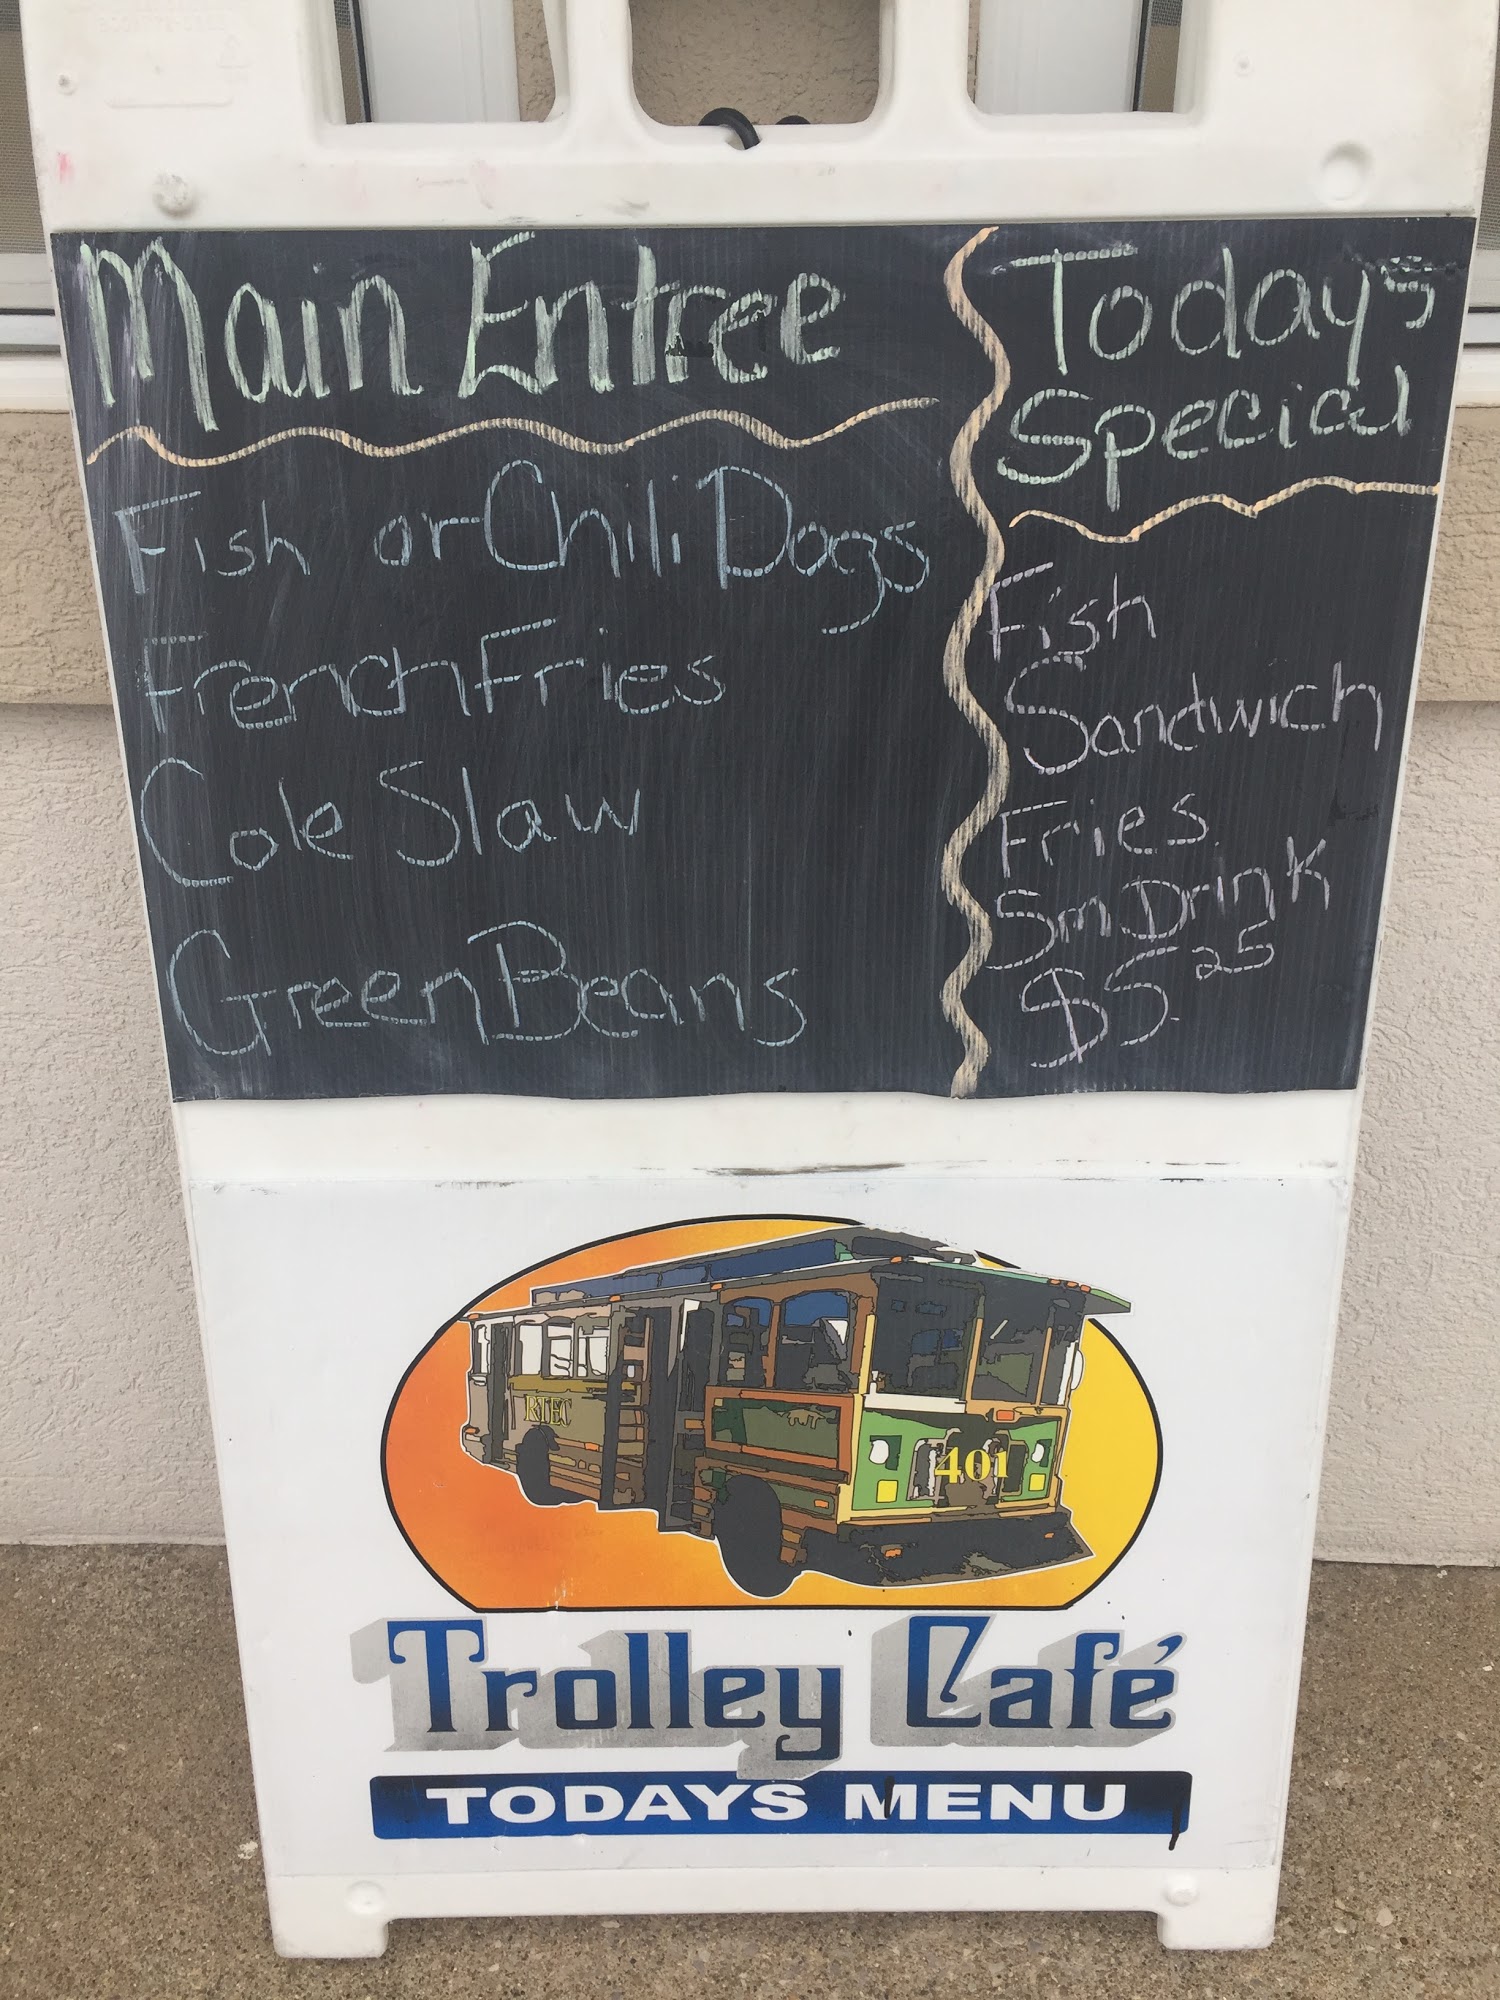 Main Entree
Fish or Chili Dogs
French Fries
Cole Slaw
Green Beans
Todays
Special
Fish
Sandwich
Fries
Sm Drink
$5.25
RTEC
401
Trolley Café
TODAYS MENU